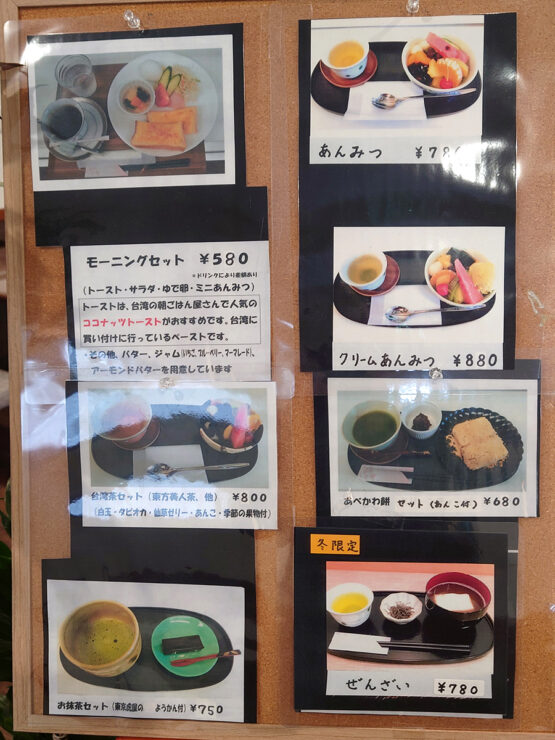 モーニングセット ￥580
*ドリンクにより差額あり
(トースト・サラダ・ゆで卵・ミニあんみつ)
トーストは、台湾の朝ごはん屋さんで人気の
ココナッツトーストがおすすめです。台湾に
買い付けに行っているペーストです。
・その他、バター、ジャム(いちご、ブルーベリー、マーマレード)、
アーモンドバターを用意しています
台湾茶セット(東方美人茶、他) ￥800
(白玉・タピオカ・仙草ゼリー・あんこ・季節の果物付)
お抹茶セット(東京虎屋の ようかん付) ￥750
あんみつ ￥780
クリームあんみつ ￥880
あべかわ餅 セット(あんこ付) ￥680
冬限定
ぜんざい ￥780